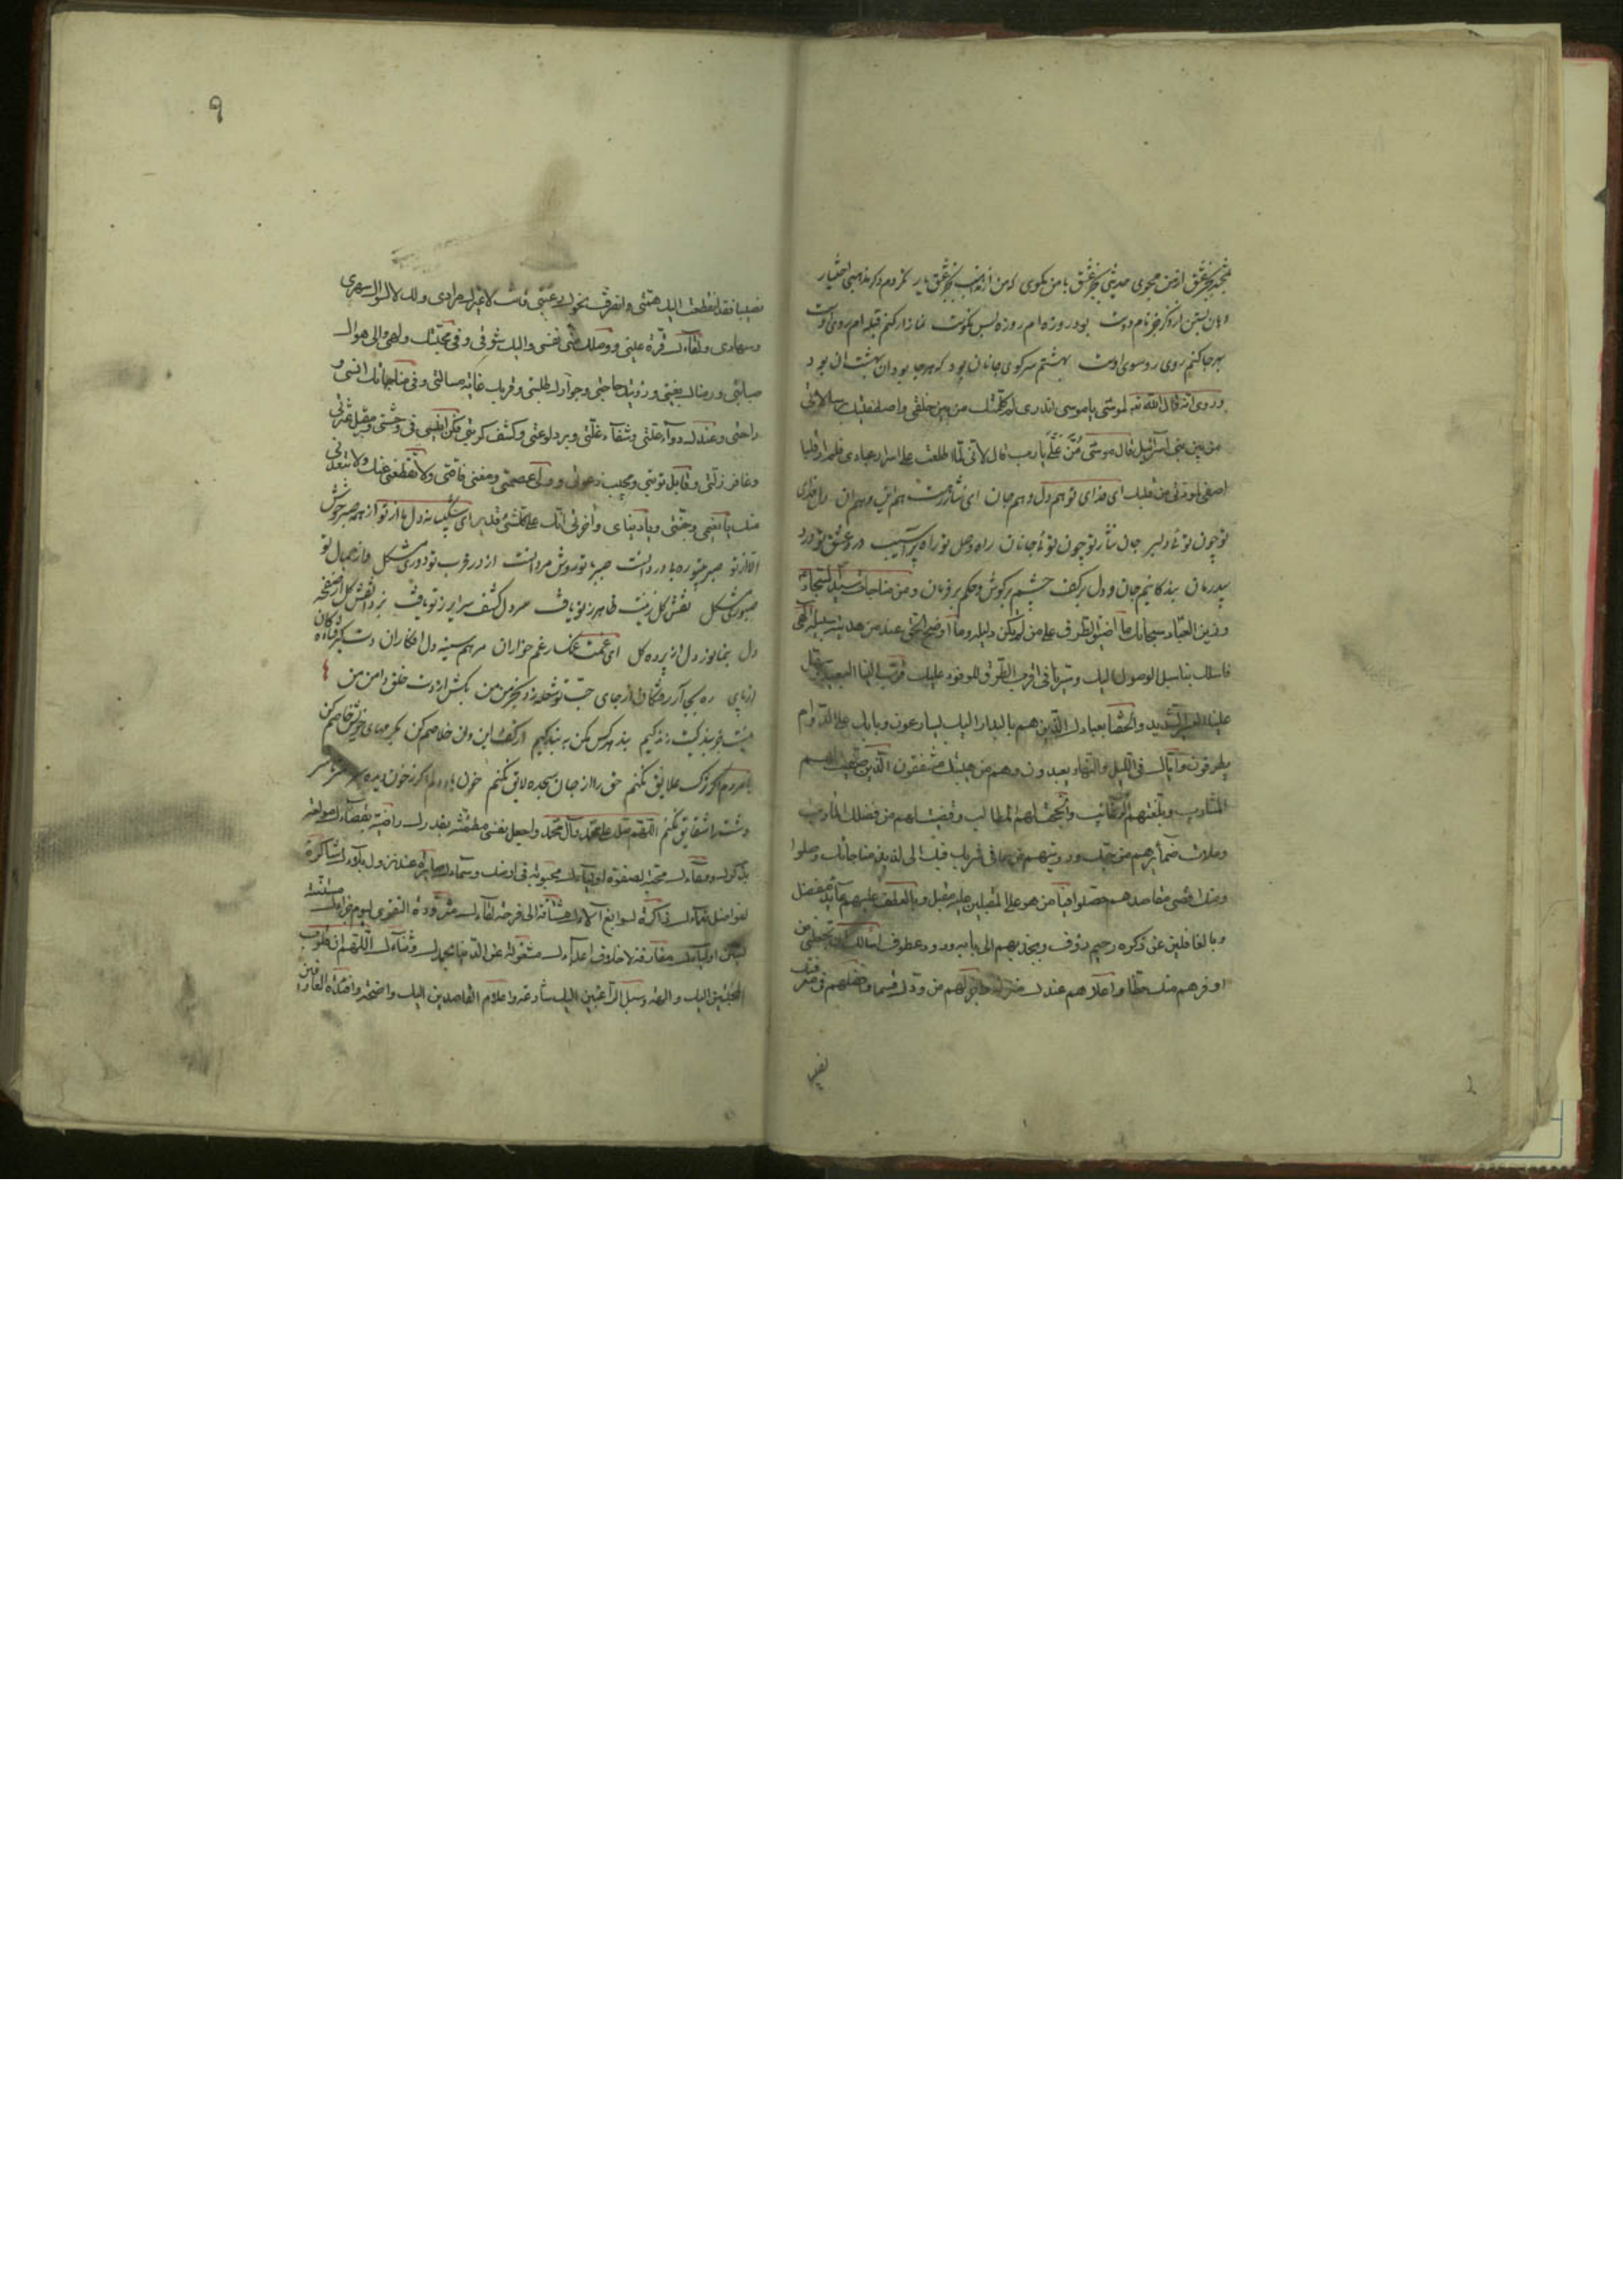 بجز عشق از من مجوی حدیثی بجز عشق با من مگوی که من از مذهب بجز عشق یار نکردم دگر مذهبی اختیار
دهان بستن از ذکر جز نام دوست بود روزه‌ام روزه بس نکوست نماز ار کنم قبله‌ام روی اوست
بهر جا کنم روی رو سوی اوست بهشتم سر کوی جانان بود که هر جا بود ان بهشت ان بود
وروی انه قال الله تعه لموسی یا موسی اتدری لم کلمتک من بین خلقی واصطفیتک برسالاتی
من بین بنی اسرائیل فقال موسی من علی یا رب قال لانی لما اطلعت علی اسرار عبادی فلم ار قلبا
اصفی لمودتی من قلبک ای فدای تو هم دل و هم جان ای نثار رهت هم این و هم ان دل فدای
تو چون توئی دلبر جان نثار تو چون توئی جانان راه وصل تو راه پر آسیب درد عشق تو درد
بیدرمان بندکانیم جان و دل بر کف چشم بر کوش و حکم بر فرمان و من مناجات سید السجاد
وزین العباد سبحانک ما اضیق الطرق علی من لم تکن دلیله وما اوضح الحق عند من هدیته سبیله الهی
فاسلک بنا سبل الوصول الیک وسیرنا فی اقرب الطرق للوفود علیک قرب الینا البعید وسهل
علینا العسیر الشدید والحقنا بعبادک الذین هم بالبدار الیک یسارعون وبابک علی الدوام
یطرقون وایاک فی اللیل والنهار یعبدون وهم من هیبتک مشفقون الذین صفیت لهم
المشارب وبلغتهم الرغائب وانجحت لهم المطالب وقضیت لهم من فضلک المآرب
وملات ضمآئرهم من حبک ورویتهم من صافی شربک فبک الی لذیذ مناجاتک وصلوا
ومنک اقصی مقاصدهم حصلوا فیا من هو علی المقبلین علیه مقبل وبالعطف علیهم عآئد مفضل
وبالغافلین عن ذکره رحیم رؤف وبجذبهم الی بابه ودود عطوف اسالک ان تجعلنی من
اوفرهم منک حظا واعلاهم عندک منزلا واجزلهم من ودک قسما وافضلهم فی معرفتک
نصیبا
۹
نصیبا فقد انقطعت الیک همتی وانصرفت نحوک رغبتی فانت لا غیرک مرادی ولک لا لسواک سهری
وسهادی ولقآءک قرة عینی ووصلک منی نفسی والیک شوقی وفی محبتک ولهی والی هواک
صبابتی ورضاک بغیتی ورؤیتک حاجتی وجوارک طلبتی وقربک غایة مسالتی وفی مناجاتک انسی و
راحتی وعندک دوآء علتی وشفآء غلتی وبرد لوعتی وکشف کربتی فکن انیسی فی وحشتی ومقیل عثرتی
وغافر زلتی وقابل توبتی ومجیب دعوتی وولی عصمتی ومغنی فاقتی ولا تقطعنی عنک ولا تبعدنی
منک یا نعیمی وجنتی ویا دنیای وآخرتی انک علی کلشی قدیر ای شکیبانه دل ما از تو از همه صبر خوش
الا از تو صبر
صبوری مشکل نقش کل زینت ظاهر ز تو یافت سر دل کشف سرایر ز تو یافت
دل بنما نوز دل از پرده کل ای غمت غمکسار غم خواران مرهم سینه دل افکاران دست کیر فتادکان
از پای ره بجی آر ز جای حب تو شعله زد بخرمن من بکش از دست خلق دامن من
بند هر کس مکن به بندکیم از کف این و ان خلاصم کن
نامردم اکر ترک علایق نکنم حق را از جان سجده لایق نکنم خون باد دلم اکر ز خون دیده
دشت را شقایق نکنم اللهم صل علی محمد وآل محمد واجعل نفسی مطمئنة بقدرک راضیة بقضآءک مولعة
بذکرک ودعآءک محبة لصفوة اولیآءک محبوبة فی ارضک وسمآءک صابرة عند نزول بلآءک شاکرة
لفواضل نعمآءک ذاکرة لسوابغ آلآءک مشتاقة الی فرحة لقآءک متزودة التقوی لیوم جزآءک مستنة
بسنن اولیآءک مفارقة لاخلاق اعدآءک مشغولة عن الدنیا بحمدک وثنآءک اللهم ان قلوب
المخبتین الیک والهة وسبل الراغبین الیک شارعة واعلام القاصدین الیک واضحة وافئدة العارفین